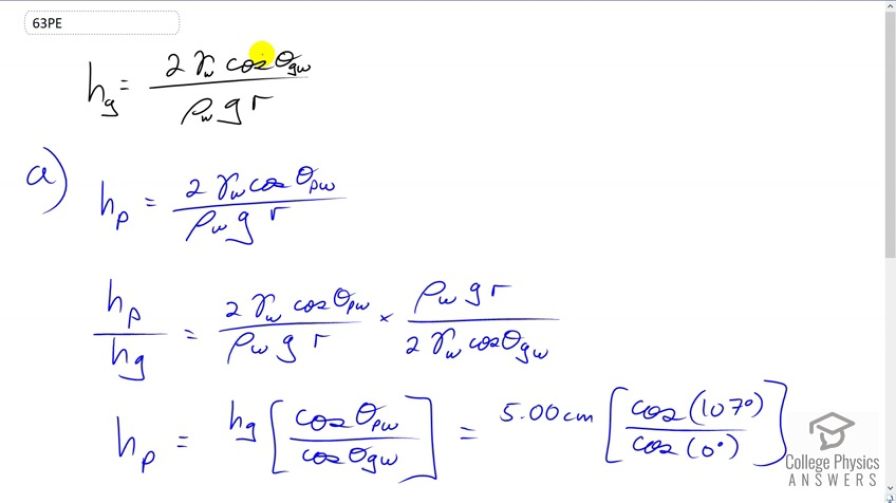 63PE
h_g = 2 γ_w cos θ_gw / ρ_w g r
a) h_p = 2 γ_w cos θ_pw / ρ_w g r
h_p / h_g = 2 γ_w cos θ_pw / ρ_w g r × ρ_w g r / 2 γ_w cos θ_gw
h_p = h_g [cos θ_pw / cos θ_gw] = 5.00 cm [cos(107°) / cos(0°)]
College Physics
ANSWERS